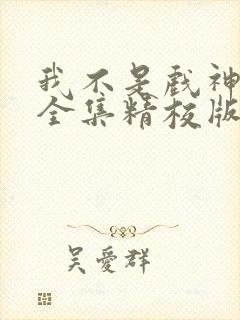 我不是戏神
全集精校版
吴愛群